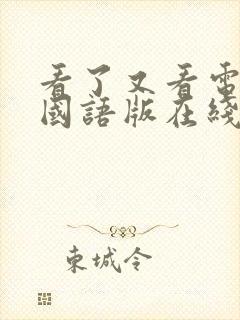 看了又看電
國語版在綫
東城令